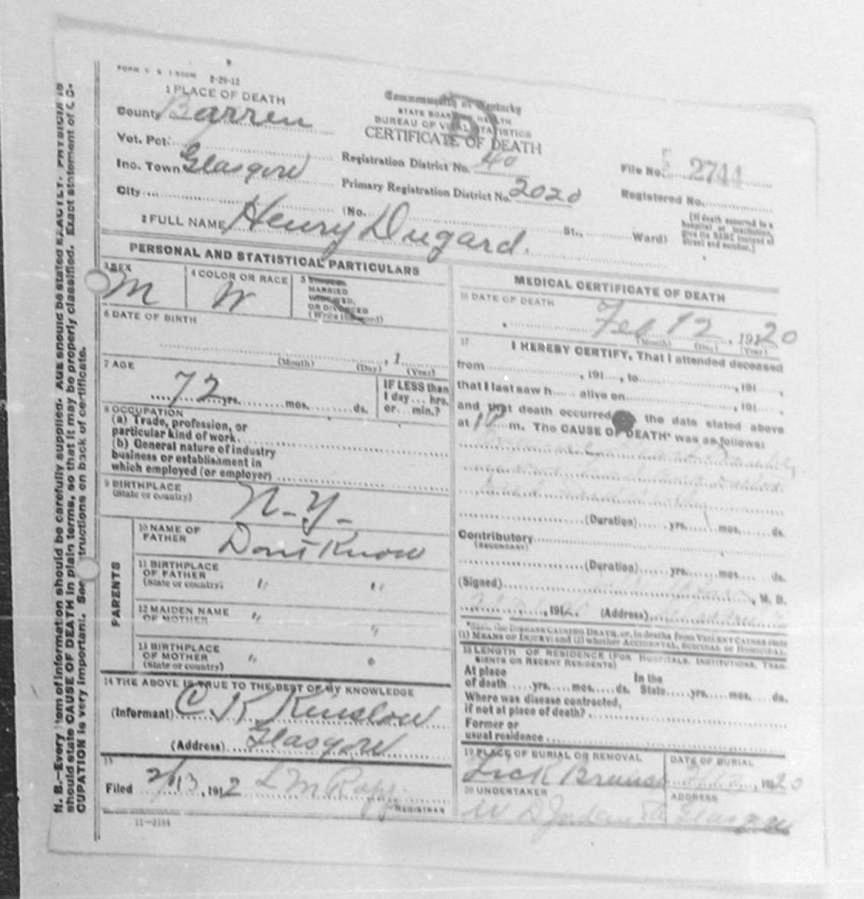 N. B.—Every item of information should be carefully supplied. AGE should be stated EXACTLY. PHYSICIANS
should state CAUSE OF DEATH in plain terms, so that it may be properly classified. Exact statement of
CUPATION is very important. See instructions on back of certificate.
2-29-12
1 PLACE OF DEATH
County Barren
Vot. Pct.
Inc. Town Glasgow
City
Commonwealth of Kentucky
STATE BOARD OF HEALTH
BUREAU OF VITAL STATISTICS
CERTIFICATE OF DEATH
Registration District No. 40
Primary Registration District No. 2020
(No. St., Ward)
File No. 2744
Registered No.
[If death occurred in a
hospital or institution,
give its NAME instead of
street and number.]
2 FULL NAME Henry Dugard.
PERSONAL AND STATISTICAL PARTICULARS
3 SEX
M
4 COLOR OR RACE
W
5
MARRIED
OR DIVORCED
6 DATE OF BIRTH
, 1
(Month) (Day) (Year)
7 AGE
72 yrs. mos. ds.
IF LESS than
1 day... hrs.
or... min.?
8 OCCUPATION
(a) Trade, profession, or
particular kind of work
(b) General nature of industry
business or establishment in
which employed (or employer)
9 BIRTHPLACE
(State or country)
N-Y-
PARENTS
10 NAME OF
FATHER
Dont Know
11 BIRTHPLACE
OF FATHER
(State or country) " "
12 MAIDEN NAME
OF MOTHER " "
13 BIRTHPLACE
OF MOTHER
(State or country) " "
14 THE ABOVE IS TRUE TO THE BEST OF MY KNOWLEDGE
(Informant) C K Kinslow
(Address) Glasgow
15
Filed 2/13, 1912 L M Rapp
REGISTRAR
11-3184
MEDICAL CERTIFICATE OF DEATH
16 DATE OF DEATH
Feb 12, 1920
(Month) (Day) (Year)
17 I HEREBY CERTIFY, That I attended deceased
from , 191 , to , 191
that I last saw h alive on , 191
and that death occurred the date stated above
at m. The CAUSE OF DEATH* was as follows:
(Duration) yrs. mos. ds.
Contributory
(SECONDARY)
(Duration) yrs. mos. ds.
(Signed) , M. D.
, 191 (Address)
*State the DISEASE CAUSING DEATH, or, in deaths from VIOLENT CAUSES state
(1) MEANS OF INJURY; and (2) whether ACCIDENTAL, SUICIDAL or HOMICIDAL
18 LENGTH OF RESIDENCE (FOR HOSPITALS, INSTITUTIONS, TRAN-
SIENTS OR RECENT RESIDENTS)
At place In the
of death yrs. mos. ds. State yrs. mos. ds.
Where was disease contracted,
if not at place of death?
Former or
usual residence
19 PLACE OF BURIAL OR REMOVAL
Lick Branch
DATE OF BURIAL
1920
20 UNDERTAKER
W D
ADDRESS
Glasgow